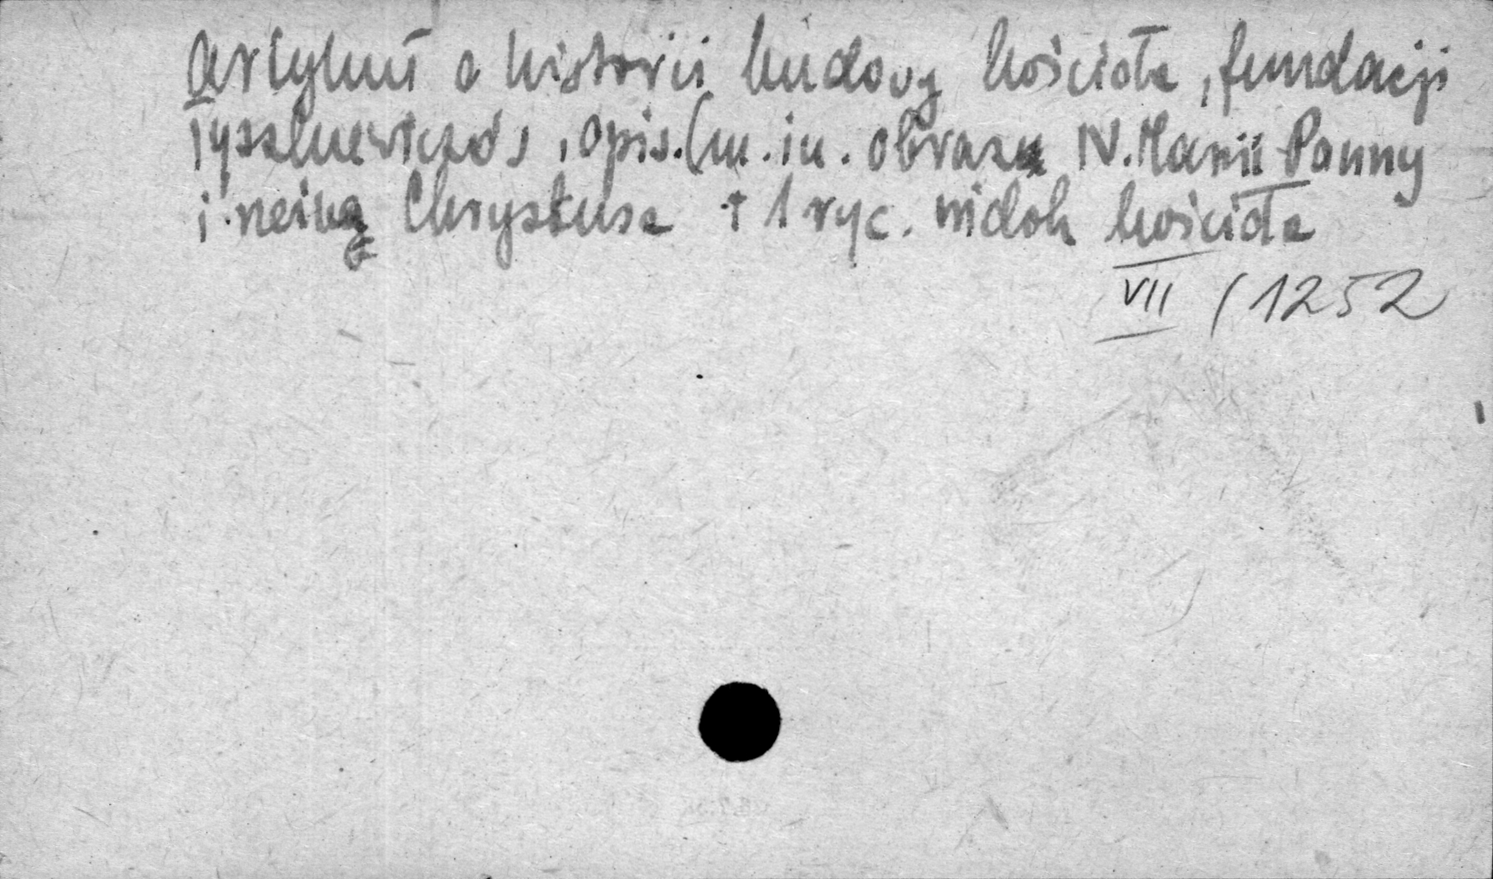 Artykuł o historii budowy kościoła, fundacji
Tyszkiewiczów, opis. (m. in. obrazu N. Marii Panny
i rzeźbą Chrystusa + 1 ryc. widok kościoła
VII / 1252